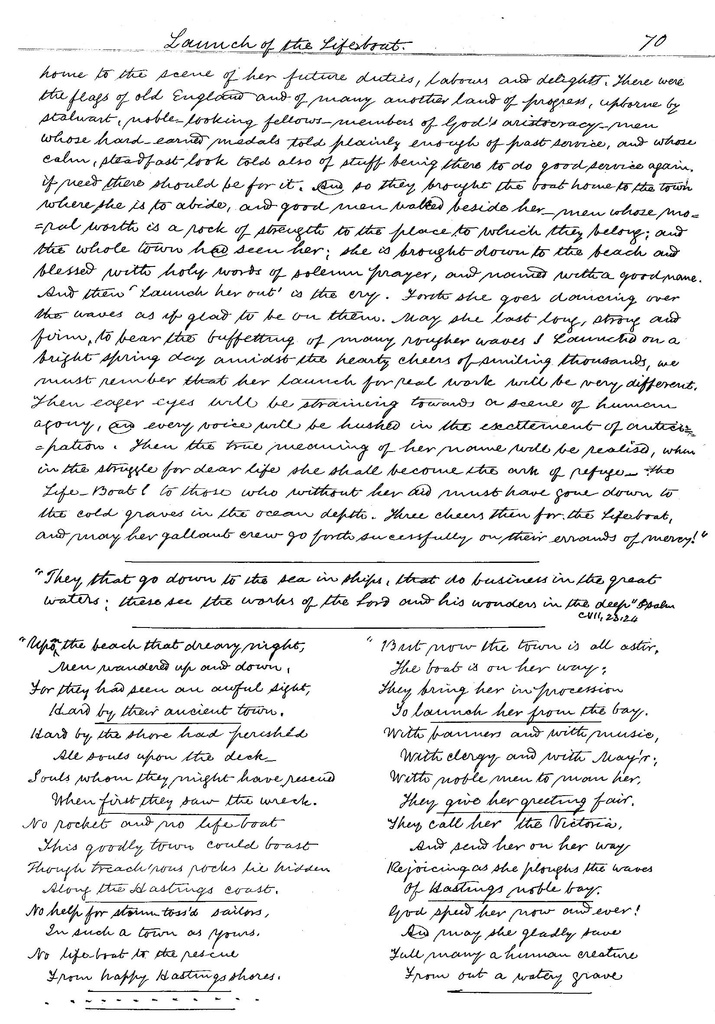 Launch of the Lifeboat. 70
home to the scene of her future duties, labours and delights. There were
the flags of old England and of many another land of progress, upborne by
stalwart, noble-looking fellows-members of God's aristocracy-men
whose hard-earned medals told plainly enough of past service, and whose
calm, steadfast look told also of stuff being there to do good service again,
if need there should be for it. And so they brought the boat home to the town
where she is to abide, and good men walked beside her-men whose mo=
=ral worth is a rock of strength to the place to which they belong; and
the whole town had seen her; she is brought down to the beach and
blessed with holy words of solemn prayer, and named with a good name.
And then "Launch her out' is the cry. Forth she goes dancing over
the waves as if glad to be on them. May she last long, strong and
firm, to bear the buffetting of many rougher waves! Launched on a
bright spring day amidst the hearty cheers of smiling thousands, we
must remember that her launch for real work will be very different.
Then eager eyes will be straining towards a scene of human
agony, and every voice will be hushed in the excitement of antici=
=pation. Then the true meaning of her name will be realised, when
in the struggle for dear life she shall become the ark of refuge-the
Life-Boat! to those who without her aid must have gone down to
the cold graves in the ocean depth. Three cheers then for the Lifeboat,
and may her gallant crew go forth sucessfully on their errands of mercy!"
"They that go down to the sea in ships, that do business in the great
waters; these see the works of the Lord and his wonders in the deep" Psalm
CVII, 23.24
"Upon the beach that dreary night,
Men wandered up and down,
For they had seen an awful sight,
Hard by their ancient town.
Hard by the shore had perished
All souls upon the deck-
Souls whom they might have rescued
When first they saw the wreck.
No rocket and no life boat
This goodly town could boast
Though treach'rous rocks lie hidden
Along the Hastings coast.
No help for storm toss'd sailors,
In such a town as yours.
No life boat to the rescue
From happy Hastings shores.
"But now the town is all astir,
The boat is on her way;
They bring her in procession
To launch her from the bay.
With banners and with music,
With clergy and with May'r;
With noble men to man her,
They give her greeting fair.
They call her the Victoria,
And send her on her way
Rejoicing as she ploughs the waves
Of Hastings noble bay.
God speed her now and ever!
And may she gladly save
Full many a human creature
From out a watery grave